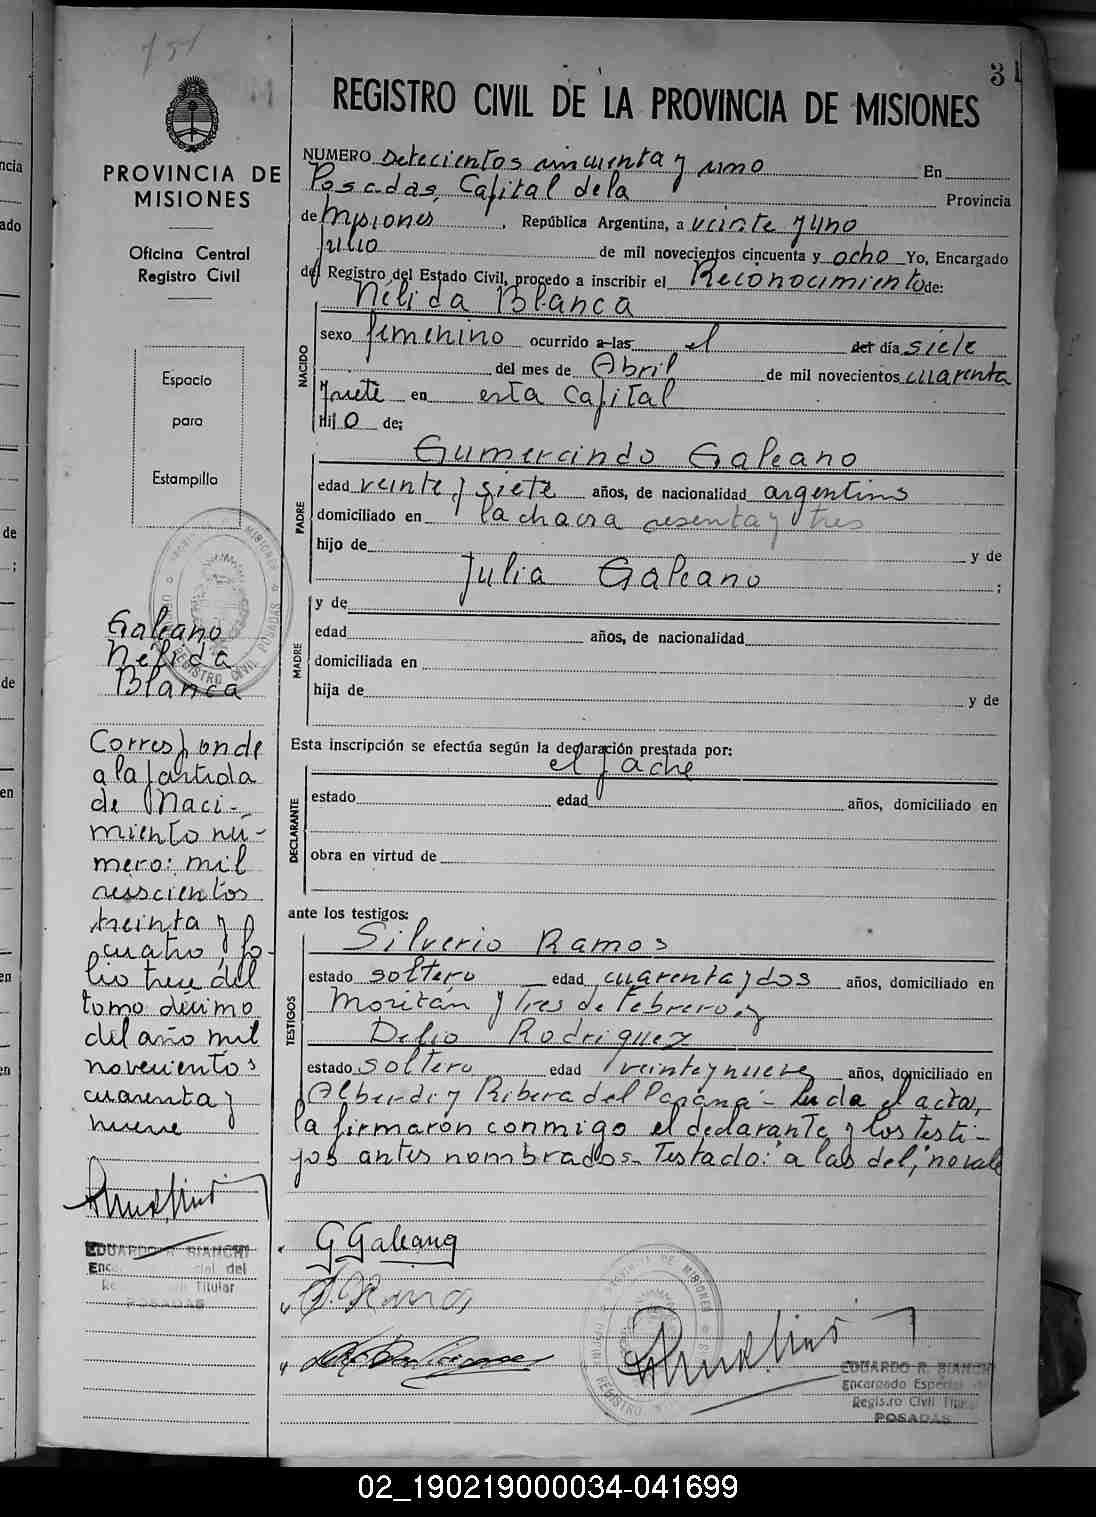 751
31
REGISTRO CIVIL DE LA PROVINCIA DE MISIONES
PROVINCIA DE
MISIONES
Oficina Central
Registro Civil
Espacio
para
Estampilla
Galeano
Nélida
Blanca
Corresponde
a la partida
de Naci-
miento nú-
mero: mil
treinta y
cuatro, fo-
lio trece del
tomo décimo
del año mil
novecientos
cuarenta y
nueve
EDUARDO R. BIANCHI
Titular
POSADAS
NUMERO Setecientos cincuenta y uno En
Posadas, Capital de la Provincia
de Misiones, República Argentina, a veinte y uno
Julio de mil novecientos cincuenta y ocho Yo, Encargado
del Registro del Estado Civil, procedo a inscribir el Reconocimiento de:
NACIDO
Nélida Blanca
sexo femenino ocurrido a las el del día siete
del mes de Abril de mil novecientos cuarenta
y siete en esta Capital
Hijo de;
PADRE
Gumercindo Galeano
edad veinte y siete años, de nacionalidad argentino
domiciliado en la chacra sesenta y tres
hijo de y de
Julia Galeano ;
MADRE
y de
edad años, de nacionalidad
domiciliada en
hija de y de
Esta inscripción se efectúa según la declaración prestada por:
el padre
DECLARANTE
estado edad años, domiciliado en
obra en virtud de
ante los testigos:
TESTIGOS
Silverio Ramos
estado soltero edad cuarenta y dos años, domiciliado en
Moritán y Tres de Febrero y
Delio Rodriguez
estado soltero edad veinte y nueve años, domiciliado en
Alberdi y Ribera del Paraná - Leida el acta,
la firmaron conmigo el declarante y los testi-
gos antes nombrados. Testado: "a las del", no vale
G Galeano
S. Ramos
PROVINCIA DE MISIONES
REGISTRO CIVIL POSADAS
EDUARDO R. BIANCHI
Encargado Especial del
Registro Civil Titular
POSADAS
02_190219000034-041699